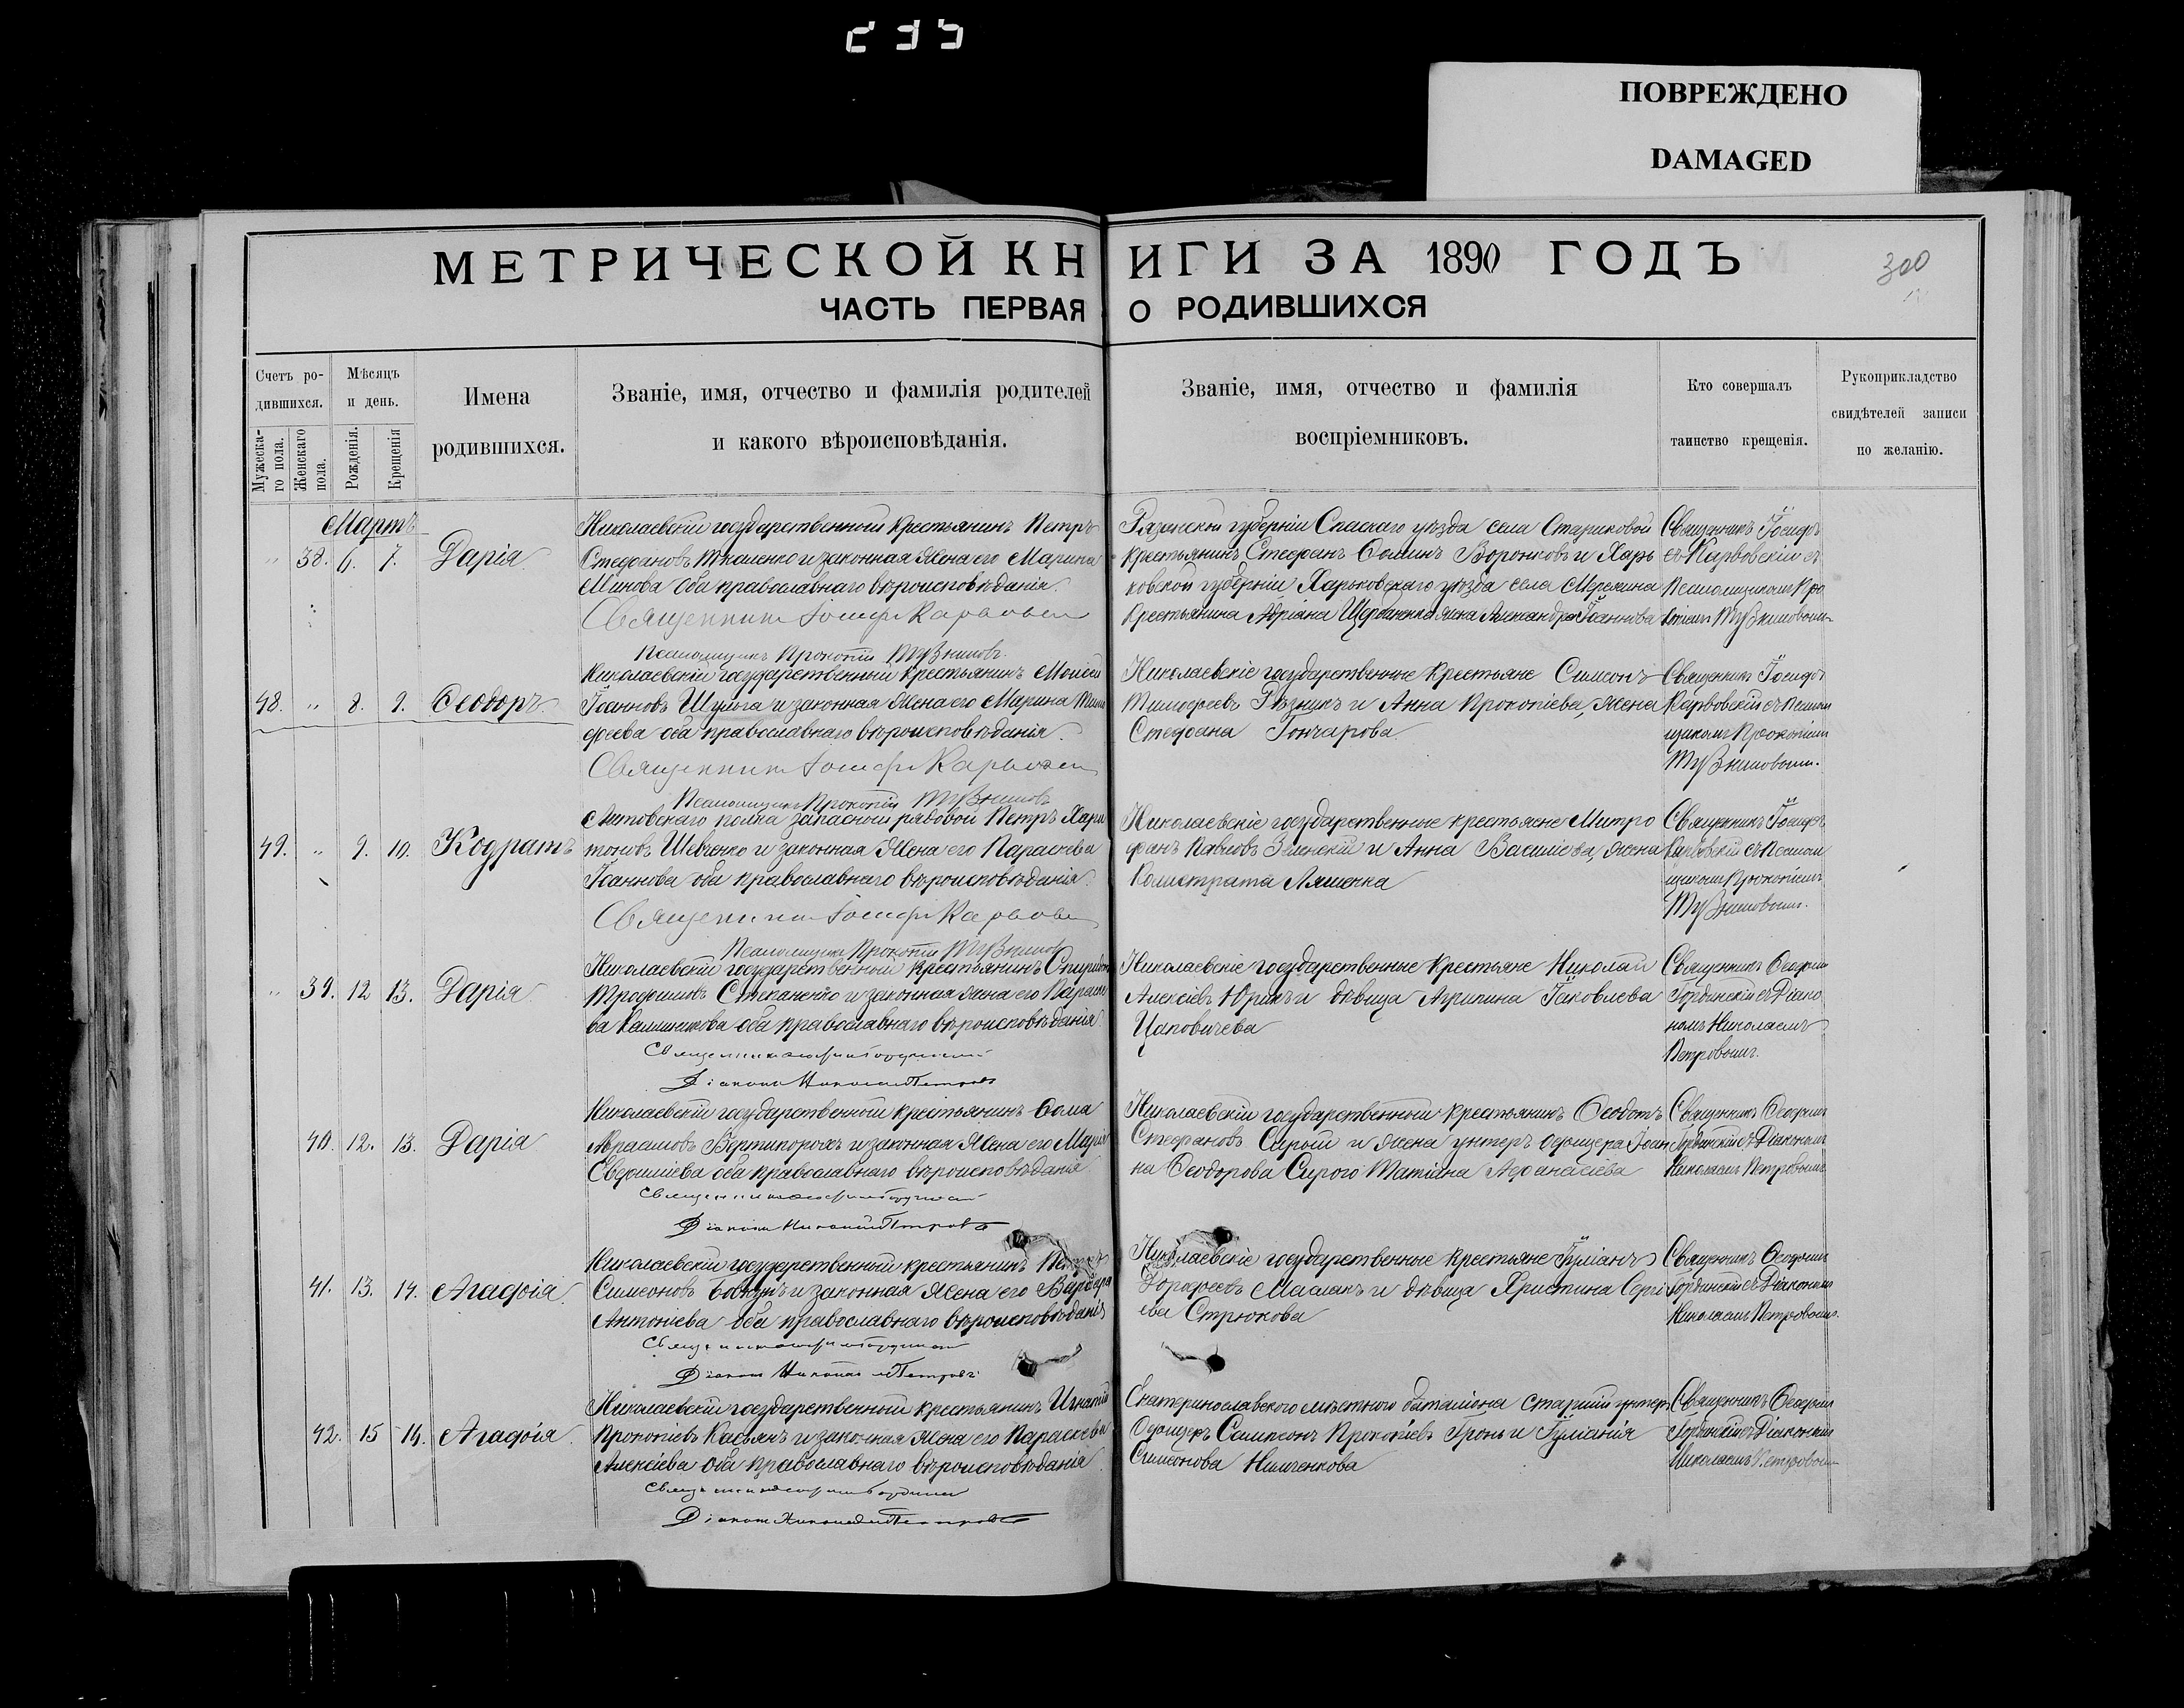 235
ПОВРЕЖДЕНО
DAMAGED
МЕТРИЧЕСКОЙ КНИГИ ЗА 1890 ГОДЪ
300
ЧАСТЬ ПЕРВАЯ О РОДИВШИХСЯ
Счетъ ро-
дившихся.
Мужеска-
го пола.
Женскаго
пола.
Мѣсяцъ
и день.
Рожденія.
Крещенія
Имена
родившихся.
Званіе, имя, отчество и фамилія родителей
и какого вѣроисповѣданія.
Званіе, имя, отчество и фамилія
воспріемниковъ.
Кто совершалъ
таинство крещенія.
Рукоприкладство
свидѣтелей записи
по желанію.
Мартъ
" 38. 6. 7. Дарія
Николаевскій государственный крестьянинъ Петръ
Стефановъ Ткаленко и законная жена его Марина
Минова оба православнаго вѣроисповѣданія.
Священникъ Іосифъ
Псаломщикъ Прокопій
губерніи Спаскаго уѣзда села Стариковой
крестьянинъ Стефанъ Ѳоминъ Воронковъ и Харь
ковской губерніи Харьковскаго уѣзда села Мерефина
крестьянина Адріана Щербаненка жена Александра Іоаннова
Священникъ Іосифъ
48. " 8. 9. Ѳеодоръ
Николаевскій государственный крестьянинъ Моисей
Іоанновъ Шульга и законная жена его Марина Тимо
феева оба православнаго вѣроисповѣданія.
Священникъ Іосифъ
Псаломщикъ Прокопій
Николаевскіе государственные крестьяне Симеонъ
Тимофеевъ Рѣзникъ и Анна Прокопіева, жена
Стефана Гончарова
Священникъ Іосифъ
щикомъ Прокопіемъ
49. " 9. 10. Кодратъ
полка запасный рядовой Петръ Хари
тоновъ Шевченко и законная жена его Параскева
Іоаннова оба православнаго вѣроисповѣданія.
Священникъ Іосифъ
Псаломщикъ Прокопій
Николаевскіе государственные крестьяне Митро
фанъ Павловъ Зеленскій и Анна Василіева, жена
Калистрата Ляшенка
Священникъ Іосифъ
щикомъ Прокопіемъ
" 39. 12 13. Дарія
Николаевскій государственный крестьянинъ Спиридонъ
Трофимовъ Степаненко и законная жена его Параске
ва Калиникова оба православнаго вѣроисповѣданія
Діаконъ Николай Петровъ
Николаевскіе государственные крестьяне Николай
Алексіевъ Юрикъ и дѣвица Агрипина Іаковлева
Цаповичева
Священникъ Ѳеофилъ
Гординскій съ Діако
номъ Николаемъ
Петровымъ.
40. 12. 13. Дарія
Николаевскій государственный крестьянинъ Ѳома
Абрамовъ Вертипорохъ и законная жена его Марія
оба православнаго вѣроисповѣданія
Діаконъ Николай Петровъ
Николаевскій государственный крестьянинъ Ѳеодотъ
Стефановъ Сирый и жена унтеръ офицера Іоан
на Ѳеодорова Сирого Татіана Афанасіева
Священникъ Ѳеофилъ
Гординскій съ Діакономъ
Николаемъ Петровымъ
41. 13. 14. Агафія
Николаевскій государственный крестьянинъ
Симеоновъ Бовкунъ и законная жена его Варвара
Антоніева оба православнаго вѣроисповѣданія
Діаконъ Николай Петровъ
Николаевскіе государственные крестьяне Іуліанъ
Дорофеевъ Масланъ и дѣвица Христина Сергі
ева Стрюкова
Священникъ Ѳеофилъ
Гординскій съ Діакономъ
Николаемъ Петровымъ.
42. 15 14. Агафія
Николаевскій государственный крестьянинъ Игнатій
Прокопіевъ Касьянъ и законная жена его Параскева
Алексіева оба православнаго вѣроисповѣданія
Діаконъ Николай Петровъ
Екатеринославского мѣстного баталіона старшій унтеръ
Офицеръ Сампсонъ Прокопіевъ Гронь и Іуліанія
Симеонова Нимченкова
Священникъ Ѳеофилъ
Гординскій съ Діакономъ
Николаемъ Петровымъ